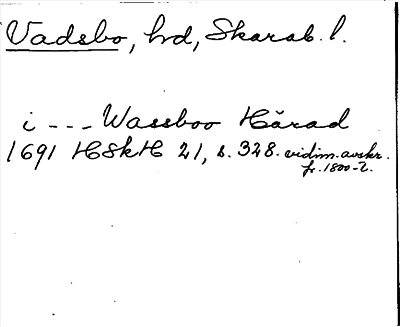 Vadsbo, hd, Skarab. l.
i --- Wassboo Härad
1691 HSkH 21, s. 328. vidim. avskr.
fr. 1800-t.